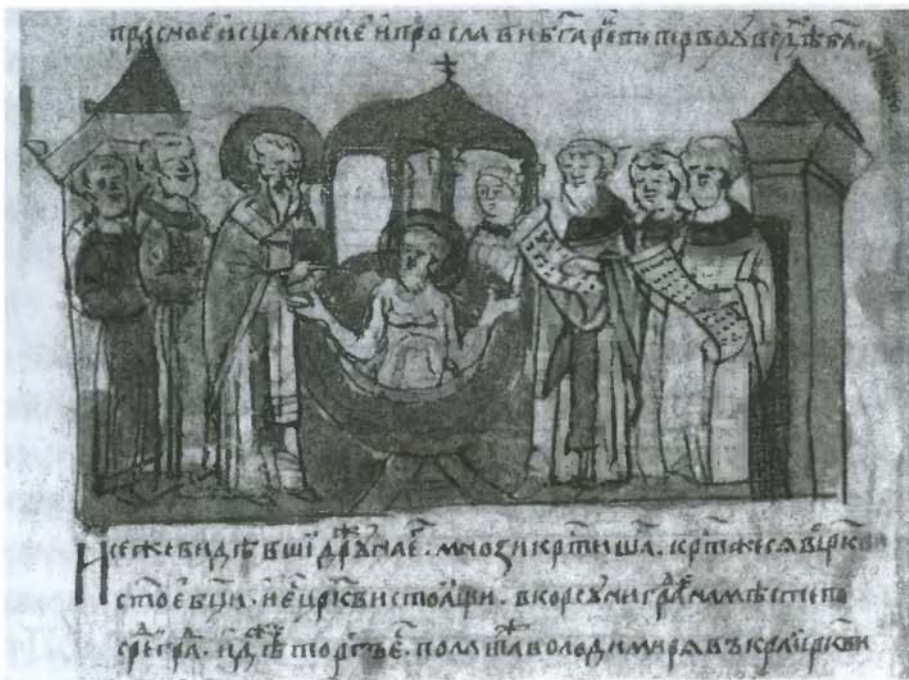 прасноє исцелениє и прослави бг҃а рекъ первоє ѹвѣдѣ ба
И се же видѣвши дрѹжинаеⷢ҇ . мнози крⷭ҇тишаⷭ҇ . крⷭ҇т же ся в црк҃ви
ст҃оє бц҃и . и єⷭ҇ црк҃ви стоящи . в корсѹни граⷣ на мѣсте по
среⷣ граⷣ . идѣⷤ торгъ єⷭ҇ . полатаⷤ володимиря въ краи црк҃ви